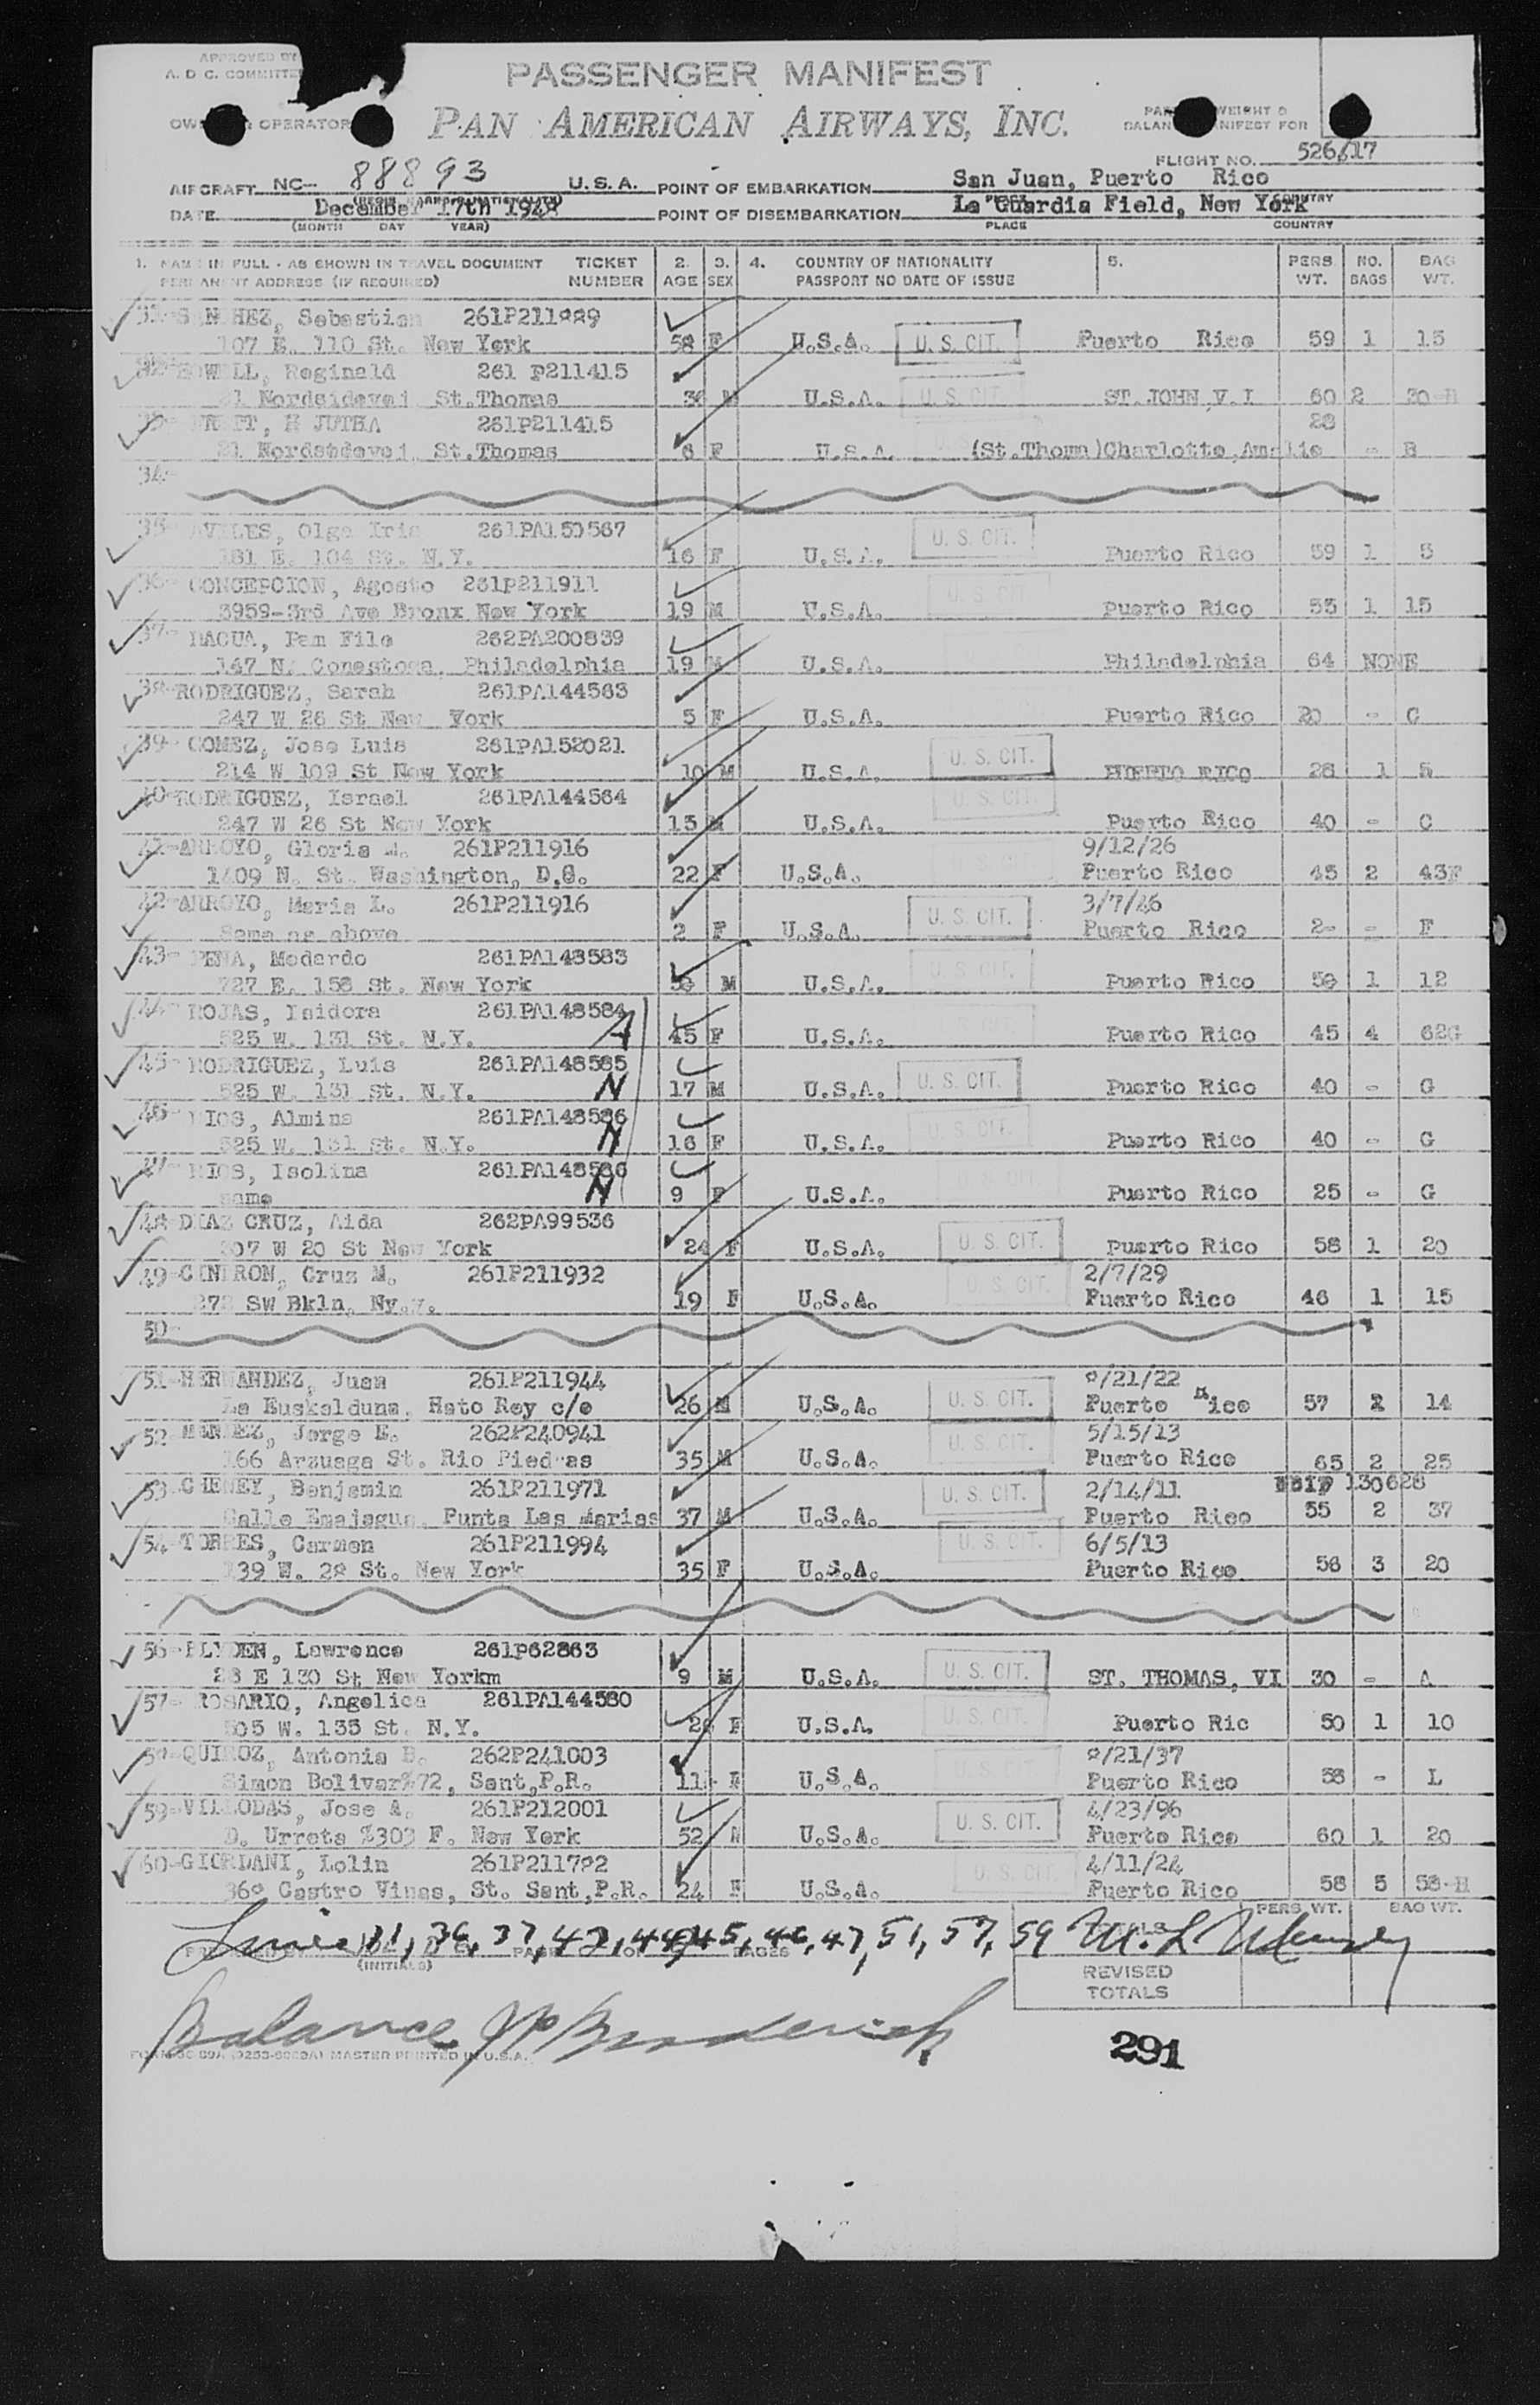 APPROVED BY
A. D C. COMMITTE
PASSENGER MANIFEST
OPERATOR
PAN AMERICAN AIRWAYS, INC.
WEIGHT &
MANIFEST FOR
FLIGHT NO. 526/17
AIRCRAFT NC- 88893 U. S. A. POINT OF EMBARKATION San Juan, Puerto Rico
DATE December 17th 1948 POINT OF DISEMBARKATION La Guardia Field, New York
(MONTH DAY YEAR) PLACE COUNTRY
1. NAME IN FULL - AS SHOWN IN TRAVEL DOCUMENT TICKET 2. 3. 4. COUNTRY OF NATIONALITY 5. PERS NO. BAG
PERMANENT ADDRESS (IF REQUIRED) NUMBER AGE SEX PASSPORT NO DATE OF ISSUE WT. BAGS WT.
31- SANCHEZ, Sebastian
107 E. 110 St. New York 58 F U.S.A. U. S. CIT. Puerto Rico 59 1 15
Reginald 261 P211415
St.Thomas U.S.A. U. S. CIT. ST. JOHN, V.I 60 2
33- 261P211415 28
St.Thomas 6 F U.S.A. (St.Thoma)Charlotte Amalie - B
34-
35- AVILES, Olga Iris 261PA150567
181 E. 104 St. N.Y. 16 F U.S.A. U. S. CIT. Puerto Rico 59 1 5
36- CONCEPCION, Agosto 261P211911
3959-3rd Ave Bronx New York 19 M U.S.A. U. S. CIT Puerto Rico 53 1 15
37- Pam File 262PA200839
147 N. Conestoga, Philadelphia 19 M U.S.A. Philadelphia 64 NONE
38- RODRIGUEZ, Sarah 261PA144563
247 W 26 St New York 5 F U.S.A. Puerto Rico 20 - C
39- GOMEZ, Jose Luis 261PA152021
214 W 109 St New York 10 M U.S.A. U. S. CIT. PUERTO RICO 28 1 5
40- RODRIGUEZ, Israel 261PA144564
247 W 26 St New York 13 M U.S.A. U. S. CIT. Puerto Rico 40 - C
41- ARROYO, Gloria M. 261P211916 9/12/26
1409 N. St. Washington, D.C. 22 F U.S.A. Puerto Rico 45 2 43F
42- ARROYO, Maria L. 261P211916 3/7/46
Same as above 2 F U.S.A. U. S. CIT. Puerto Rico 2- - F
43- PENA, Modardo 261PA148583
727 E. 158 St. New York M U.S.A. U. S. CIT. Puerto Rico 1 12
44- ROJAS, Isidora 261PA148584
525 W. 131 St. N.Y. A 45 F U.S.A. Puerto Rico 45 4 62G
45- RODRIGUEZ, Luis 261PA148585
525 W. 131 St. N.Y. N 17 M U.S.A. U. S. CIT. Puerto Rico 40 - G
46- RIOS, Almina 261PA148586
525 W. 131 St. N.Y. N 16 F U.S.A. U. S. CIT. Puerto Rico 40 - G
47- RIOS, Isolina 261PA148586
same N 9 F U.S.A. Puerto Rico 25 - G
48- DIAZ CRUZ, Aida 262PA99536
307 W 20 St New York 24 F U.S.A. U. S. CIT. Puerto Rico 58 1 20
49- CINTRON, Cruz M. 261P211932 2/7/29
Sw Bkln, Ny.y. 19 F U.S.A. U. S. CIT. Puerto Rico 46 1 15
50-
51- HERNANDEZ, Juan 261P211944 /21/22
La Euskalduna, Hato Rey c/o 26 M U.S.A. U. S. CIT. Puerto Rico 57 2 14
52 MENDEZ, Jorge E. 262P240941 5/15/13
166 Arzuaga St. Rio Piedras 35 M U.S.A. U. S. CIT. Puerto Rico 65 2 25
53- CHENEY, Benjamin 261P211971 2/14/11 130628
Calle Emajagua, Punta Las Marias 37 M U.S.A. U. S. CIT. Puerto Rico 55 2 37
54- TORRES, Carmen 261P211994 6/5/13
139 W. 28 St. New York 35 F U.S.A. U. S. CIT. Puerto Rico 56 3 20
56- BLYDEN, Lawrence 261P62863
28 E 130 St New Yorkm 9 M U.S.A. U. S. CIT. ST. THOMAS, VI 30 - A
57- ROSARIO, Angelica 261PA144580
505 W. 135 St. N.Y. F U.S.A. U. S. CIT. Puerto Ric 50 1 10
QUIROZ, Antonia B. 262P241003 /21/37
Simon Bolivar#72, Sant,P.R. 11 F U.S.A. Puerto Rico 58 - L
59- VILLODAS, Jose A. 261P212001 4/23/96
D. Urreta #303 F. New York 52 M U.S.A. U. S. CIT. Puerto Rico 60 1 20
60- GIORDANI, Lolin 261P211782 4/11/24
Castro Vinas, St. Sant,P.R. 24 F U.S.A. U. S. CIT. Puerto Rico 58 5 58-H
PERS WT. BAG WT.
31, 36, 37, 43, 44, 45, 46, 47, 51, 57, 59
(INITIALS)
REVISED
TOTALS
Balance
MASTER PRINTED IN U.S.A.
291